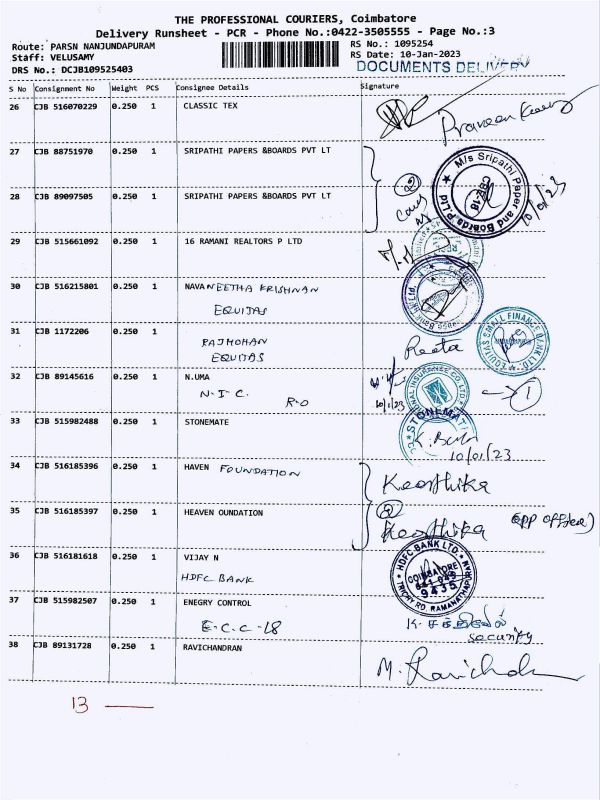 THE PROFESSIONAL COURIERS, Coimbatore
Delivery Runsheet - PCR - Phone No.:0422-3505555 - Page No.:3
Route: PARSN NANJUNDAPURAM
Staff: VELUSAMY
DRS No.: DCJB109525403
RS No.: 1095254
RS Date: 10-Jan-2023
DOCUMENTS DELIVERY
S No Consignment No Weight PCS Consignee Details Signature
26 CJB 516070229 0.250 1 CLASSIC TEX
27 CJB 88751970 0.250 1 SRIPATHI PAPERS &BOARDS PVT LT
M/s Sripathi Paper and Boards P.Ltd
CBE-18
10/01/23
28 CJB 89097505 0.250 1 SRIPATHI PAPERS &BOARDS PVT LT
29 CJB 515661092 0.250 1 16 RAMANI REALTORS P LTD
30 CJB 516215801 0.250 1 NAVANEETHA KRISHNAN
EQUITAS
31 CJB 1172206 0.250 1
RAJMOHAN
EQUITAS
Reeta
EQUITAS SMALL FINANCE BANK LTD
32 CJB 89145616 0.250 1 N.UMA
N.I.C. R.O
10/1/23
INSURANCE CO.LTD
1
33 CJB 515982488 0.250 1 STONEMATE
10/01/23
34 CJB 516185396 0.250 1 HAVEN FOUNDATION
Keerthika
35 CJB 516185397 0.250 1 HEAVEN OUNDATION
2
Keerthika
36 CJB 516181618 0.250 1 VIJAY N
HDFC BANK
HDFC BANK LTD.
COIMBATORE
9435
TRICHY RD. RAMANATHAPURAM
37 CJB 515982507 0.250 1 ENEGRY CONTROL
E.C.C-18
security
38 CJB 89131728 0.250 1 RAVICHANDRAN
13